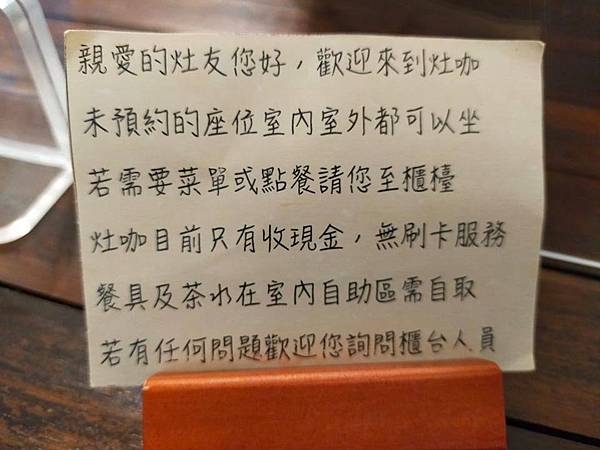 親愛的灶友您好，歡迎來到灶咖
未預約的座位室內室外都可以坐
若需要菜單或點餐請您至櫃檯
灶咖目前只有收現金，無刷卡服務
餐具及茶水在室內自助區需自取
若有任何問題歡迎您詢問櫃台人員